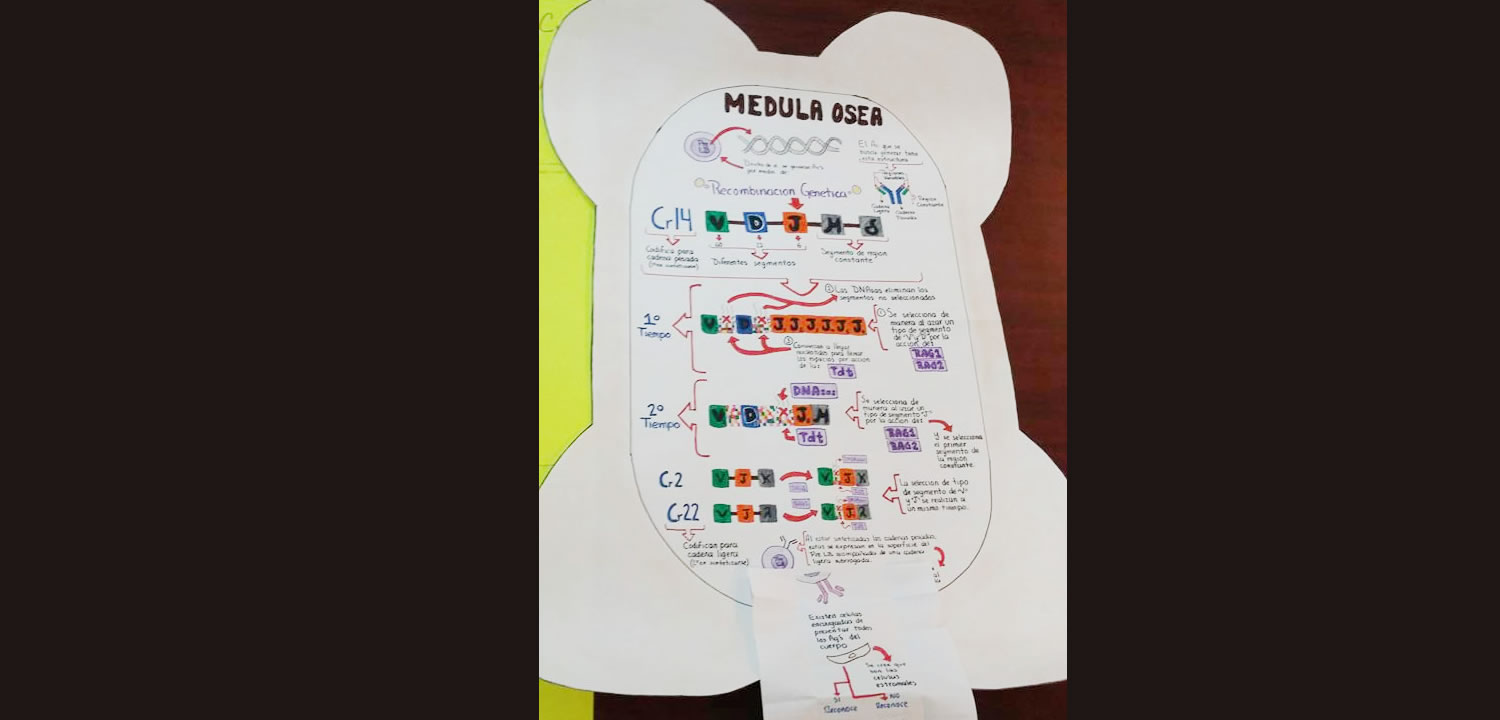 C.
MEDULA OSEA
El Ac que se
busca generar tiene
esta estructura
Dentro de el se generan Ac's
por medio de:
Recombinacion Genetica
Regiones
Variables
Cadena
ligera
Cadena
Pesada
Region
Constante
Cr14
V D J M δ
6
Codifica para
cadena pesada
Diferentes segmentos
Segmento de region
"constante"
② Las DNAsas eliminan los
segmentos no seleccionados
1º
Tiempo
V X D X J J J J J J
① Se selecciona de
manera al azar un
tipo de segmento
de "V" y "D" por la
accion de:
RAG1
RAG2
③ Comienzan a llegar
nucleotidos para llenar
los espacios por accion
de las
Tdt
2º
Tiempo
DNAsas
V D X J M
Tdt
Se selecciona de
manera al azar un
tipo de segmento "J"
por la accion de:
RAG1
RAG2
Y se selecciona
el primer
segmento de
la region
constante.
Cr2
V J K
V J K
Cr22
V J λ
V J λ
La seleccion de tipo
de segmento de "V"
y "J" se realizan a
un mismo tiempo.
Codifican para
cadena ligera
Al estar sintetizadas las cadenas pesadas,
estas se expresan en la superficie del
Pre LB acompañadas de una cadena
ligera subrogada.
Existen celulas
encargadas de
presentar todos
los Ag's del
cuerpo
Se cree que
son las
celulas
estromales
SI
Reconoce
NO
Reconoce